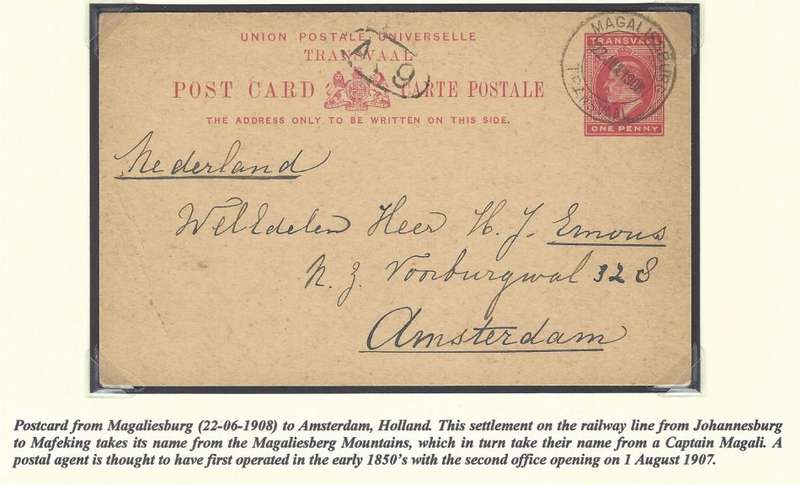 UNION POSTALE UNIVERSELLE
TRANSVAAL
POST CARD CARTE POSTALE
THE ADDRESS ONLY TO BE WRITTEN ON THIS SIDE.
A 9
MAGALIESBURG
TRANSVAAL
TRANSVAAL
ONE PENNY
Nederland
WelEdelen Heer H. J. Emous
N. Z. Voorburgwal 328
Amsterdam
Postcard from Magaliesburg (22-06-1908) to Amsterdam, Holland. This settlement on the railway line from Johannesburg
to Mafeking takes its name from the Magaliesberg Mountains, which in turn take their name from a Captain Magali. A
postal agent is thought to have first operated in the early 1850's with the second office opening on 1 August 1907.